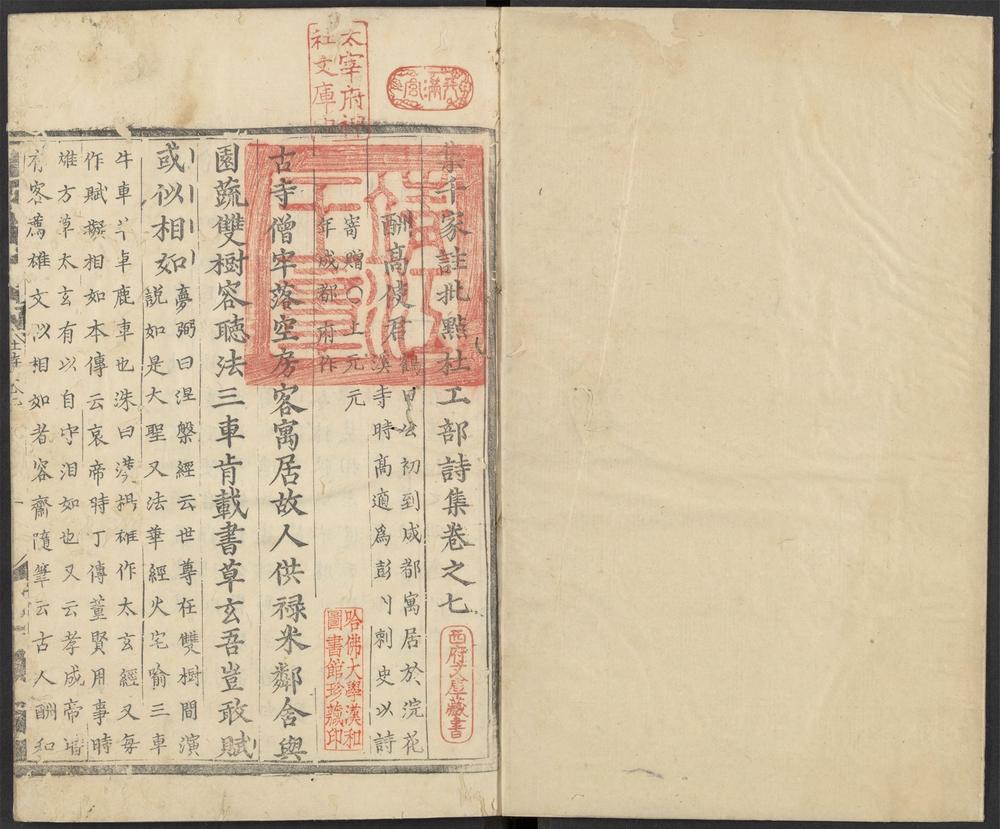 集千家註批點杜工部詩集卷之七
酬高使君
鶴曰公初到成都寓居於浣花
溪寺時高適爲彭州刺史以詩
寄贈○上元元
年成都府作
古寺僧牢落空房客寓居故人供禄米鄰舍與
園蔬雙樹容聽法三車肯載書草玄吾豈敢賦
或似相如
夢弼曰涅槃經云世尊在雙樹間演
說如是大聖又法華經火宅喻三車
牛車羊車鹿車也洙曰漢揚雄作太玄經又每
作賦擬相如本傳云哀帝時丁傅董賢用事時
雄方草太玄有以自守泊如也又云孝成帝時
有客薦雄文似相如者容齋隨筆云古人酬和
太宰府神
社文庫
天滿宮
西府文庫藏書
哈佛大學漢和
圖書館珍藏印